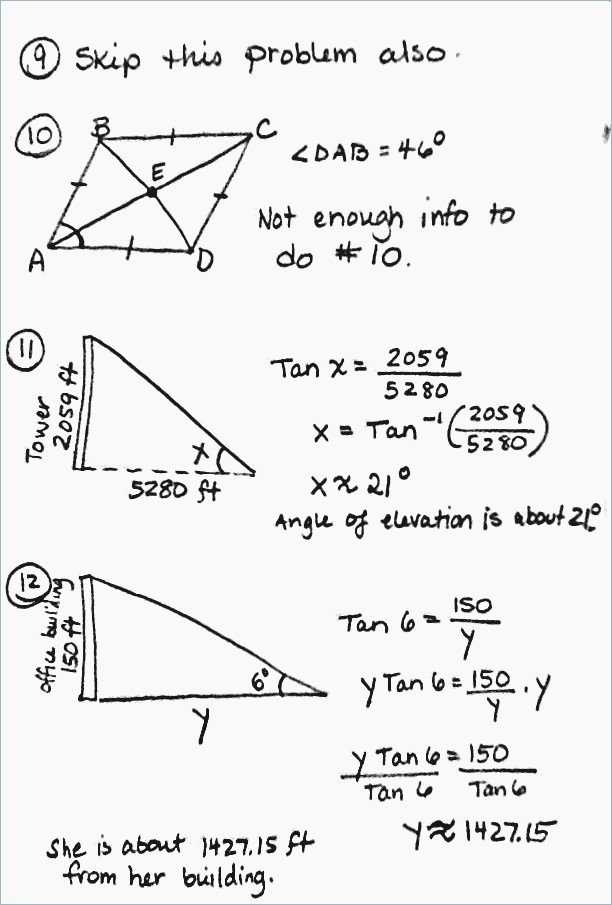 9 Skip this problem also.
10
B
C
E
A
D
∠DAB = 46°
Not enough info to
do #10.
11
Tower
2059 ft
x
5280 ft
Tan x = 2059/5280
x = Tan⁻¹(2059/5280)
x ≈ 21°
Angle of elevation is about 21°
12
office building
150 ft
6°
y
Tan 6 = 150/y
y Tan 6 = 150/y · y
y Tan 6/Tan 6 = 150/Tan 6
y ≈ 1427.15
She is about 1427.15 ft
from her building.